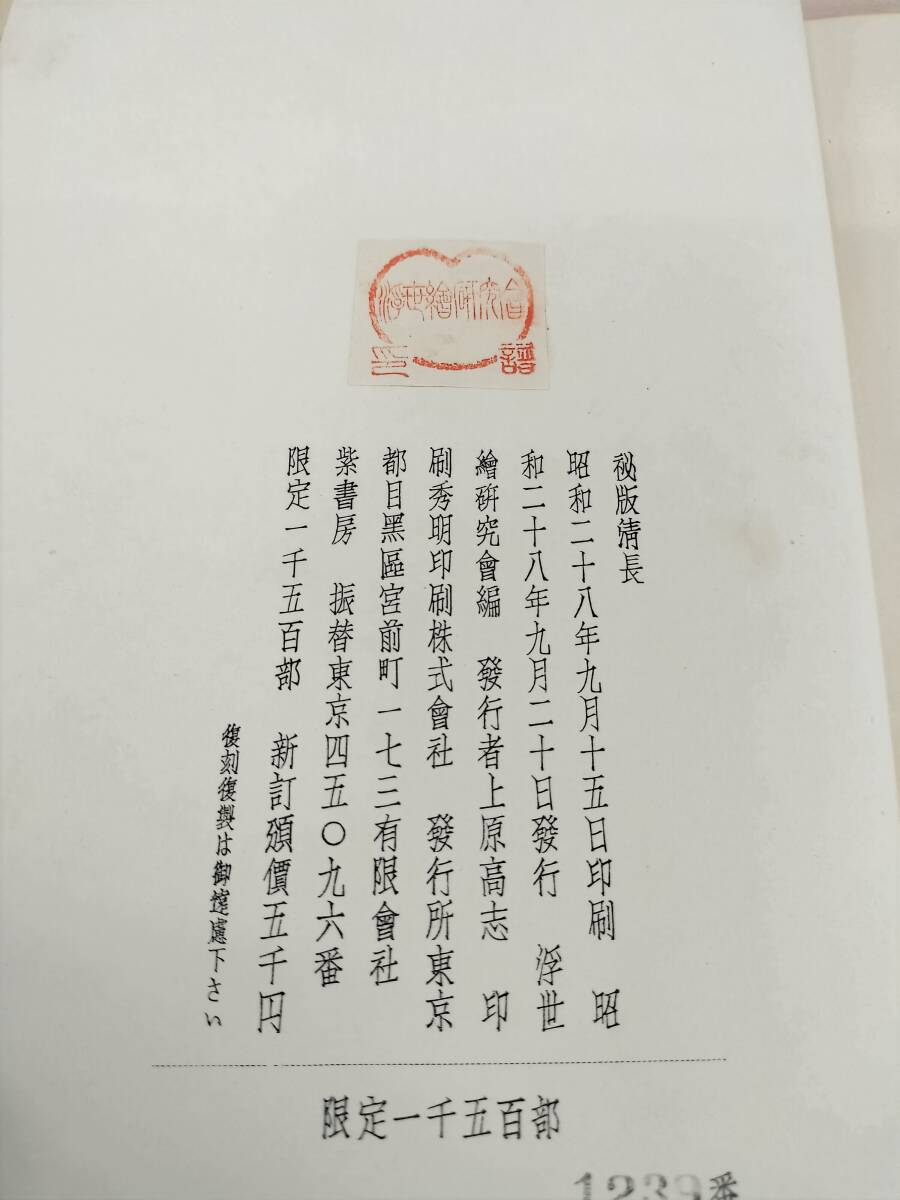 浮世繪研究會
譜印
祕版淸長
昭和二十八年九月十五日印刷　昭
和二十八年九月二十日發行　浮世
繪硏究會編　發行者上原高志　印
刷秀明印刷株式會社　發行所東京
都目黑區宮前町一七三有限會社
紫書房　振替東京四五〇九六番
限定一千五百部　新訂頒價五千円
復刻復製は御遠慮下さい
限定一千五百部
1239番